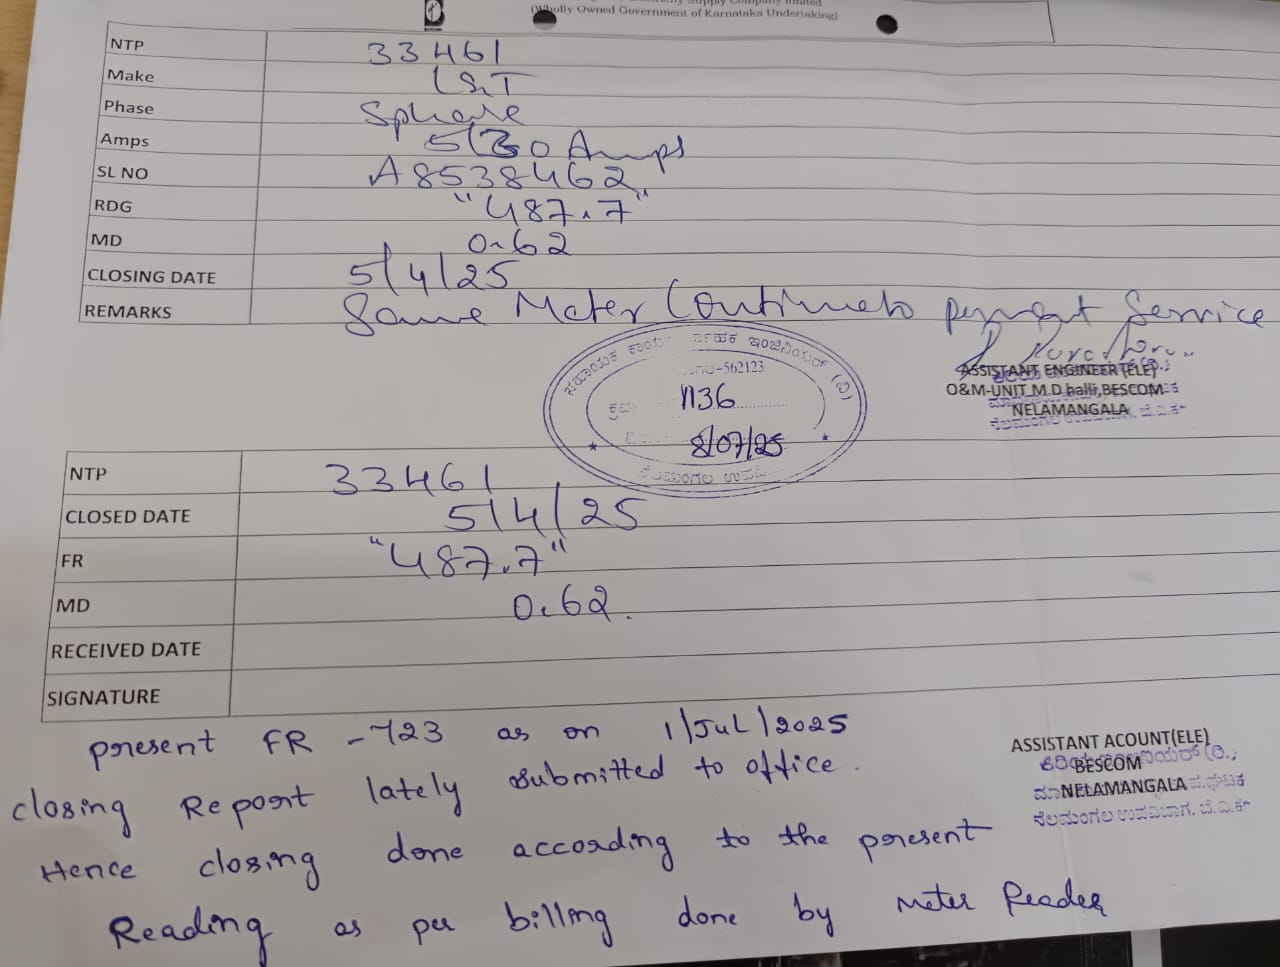 (Wholly Owned Government of Karnataka Undertaking)
NTP 33461
Make L&T
Phase
Amps 5/30 Amps
SL NO A8538462
RDG "487.7"
MD 0.62
CLOSING DATE 5/4/25
REMARKS Same Meter Service
ಸಹಾಯಕ ಇಂಜಿನಿಯರ್ (ವಿ)
-562123
1136
8/07/25
ನೆಲಮಂಗಲ ಉಪವಿ
ASSISTANT ENGINEER (ELE)
O&M-UNIT M.D halli,BESCOM
NELAMANGALA
NTP 33461
CLOSED DATE 5/4/25
FR "487.7"
MD 0.62.
RECEIVED DATE
SIGNATURE
present FR -723 as on 1/JUL/2025
closing Report lately submitted to office.
Hence closing done according to the present
Reading as per billing done by Meter Reader
ASSISTANT ACOUNT(ELE)
BESCOM
NELAMANGALA
ನೆಲಮಂಗಲ ಉಪವಿಭಾಗ. ಬೆ.ವಿ.ಕ